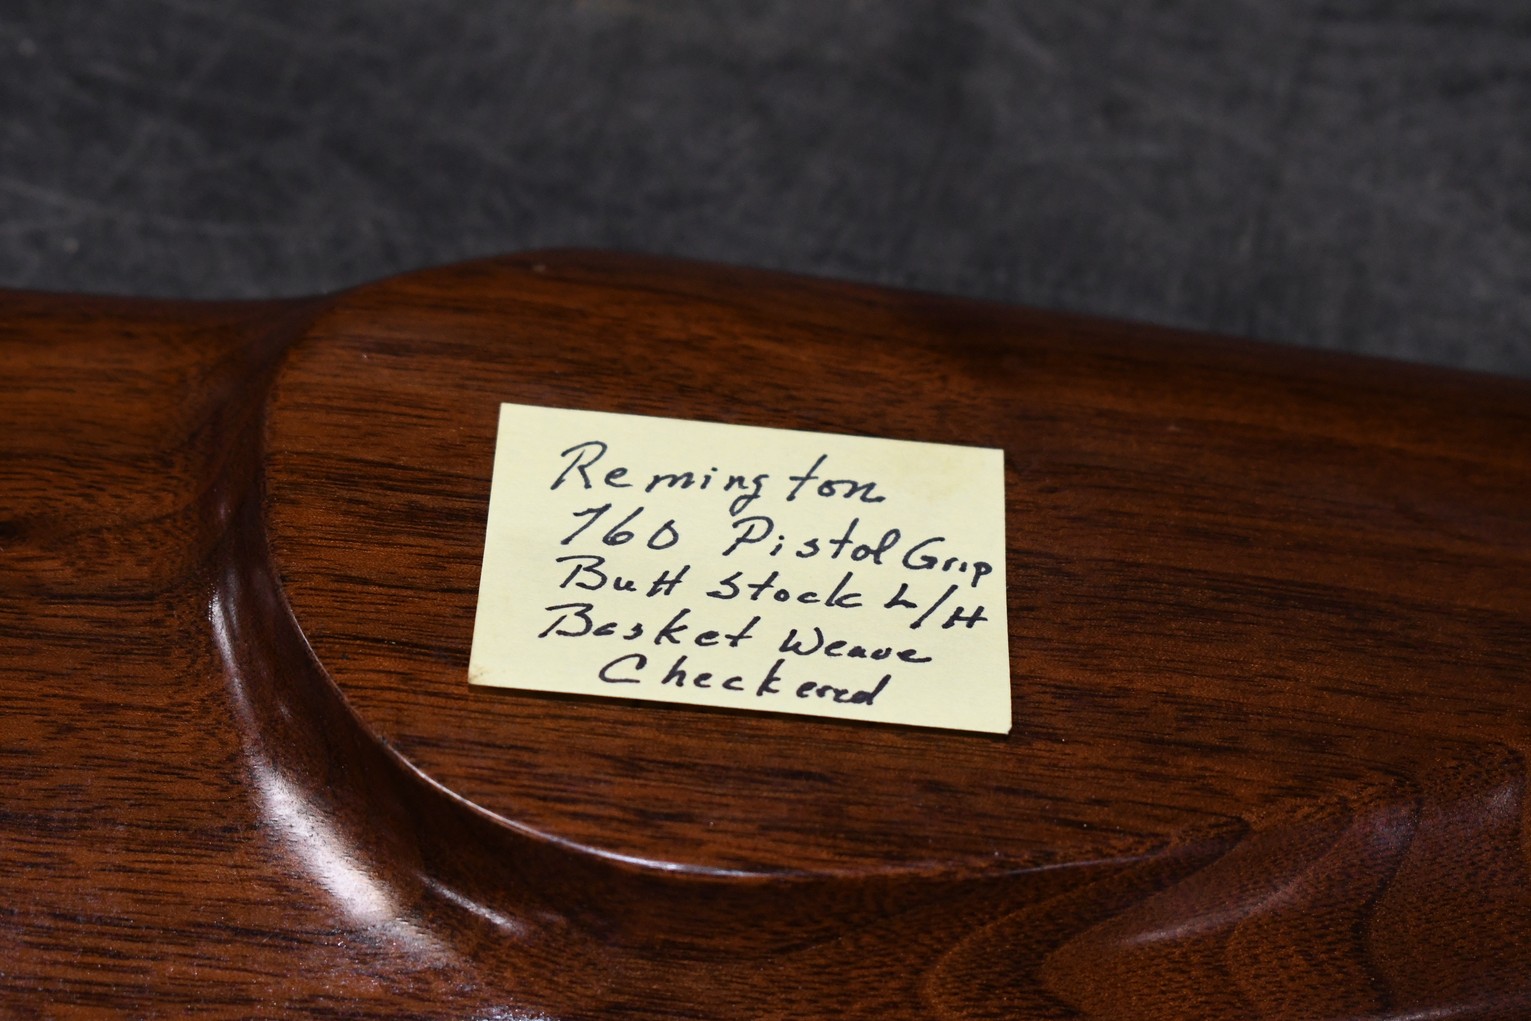 Remington
760 Pistol Grip
Butt Stock L/H
Basket Weave
Checkered